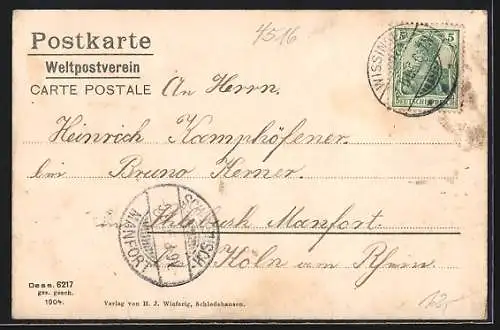 4516
Postkarte
Weltpostverein
CARTE POSTALE
An Herrn.
Heinrich Kamphöfener.
bei Bruno Kerner.
in Manfort.
Köln am Rhein
5 5
DEUTSCHES REICH
WISSING
MANFORT
Dess. 6217
ges. gesch.
1904.
Verlag von H. J. Winferig, Schledehausen.
12,-